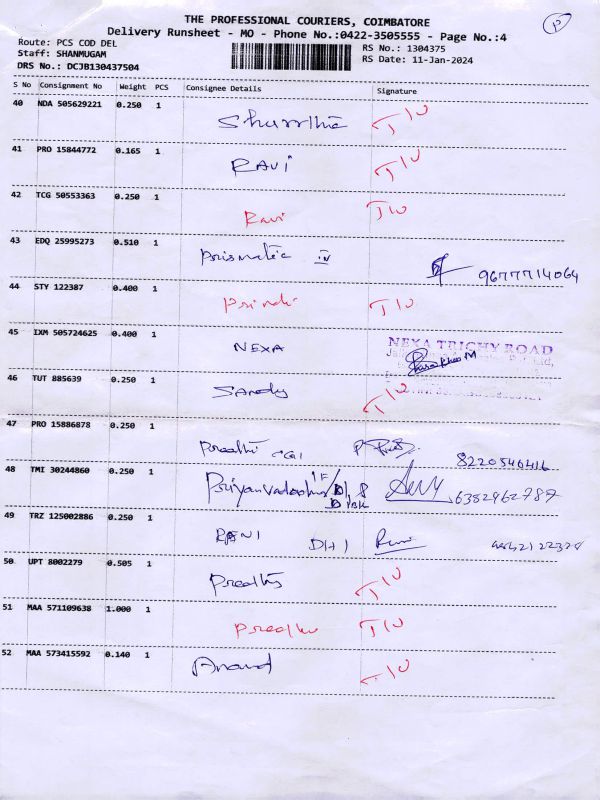 THE PROFESSIONAL COURIERS, COIMBATORE
Delivery Runsheet - MO - Phone No.:0422-3505555 - Page No.:4
P
Route: PCS COD DEL
RS No.: 1304375
Staff: SHANMUGAM
RS Date: 11-Jan-2024
DRS No.: DCJB130437504
S No Consignment No Weight PCS Consignee Details Signature
40 NDA 505629221 0.250 1
41 PRO 15844772 0.165 1
RAVI
42 TCG 50553363 0.250 1
Ravi
43 EDQ 25995273 0.510 1
Prismatic IV
9677714064
44 STY 122387 0.400 1
45 IXM 505724625 0.400 1
NEXA
NEXA TRICHY ROAD
46 TUT 885639 0.250 1
Sandy
47 PRO 15886878 0.250 1
Preethi CGI
8220546416
48 TMI 30244860 0.250 1
6382962787
49 TRZ 125002886 0.250 1
RANI DHI
50 UPT 8002279 0.505 1
51 MAA 571109638 1.000 1
52 MAA 573415592 0.140 1
Anand